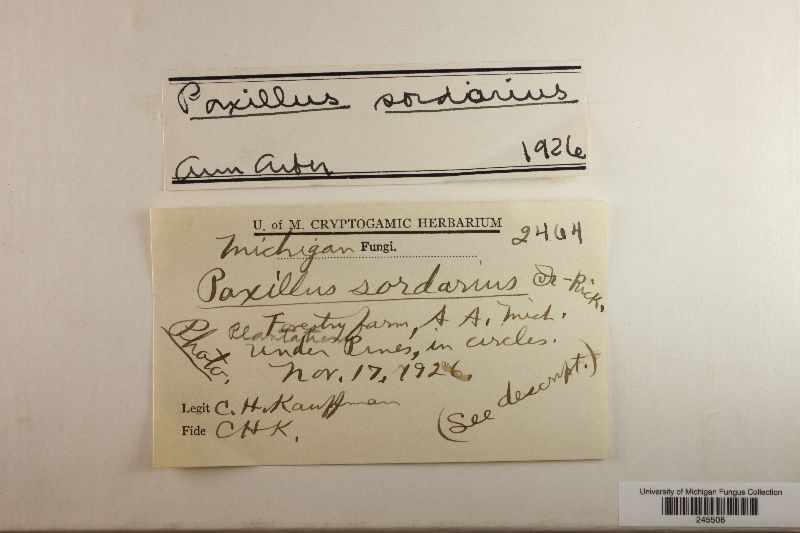 Paxillus sordarius
Ann Arbor 1926
U. of M. CRYPTOGAMIC HERBARIUM
2464
Michigan Fungi.
Paxillus sordarius Fr-Rick.
Forestry farm, A A. Mich.
Plantations
under Pines, in circles.
Photo.
Nov. 17, 1926.
Legit C. H. Kauffman
(See descript.)
Fide CHK.
University of Michigan Fungus Collection
245508